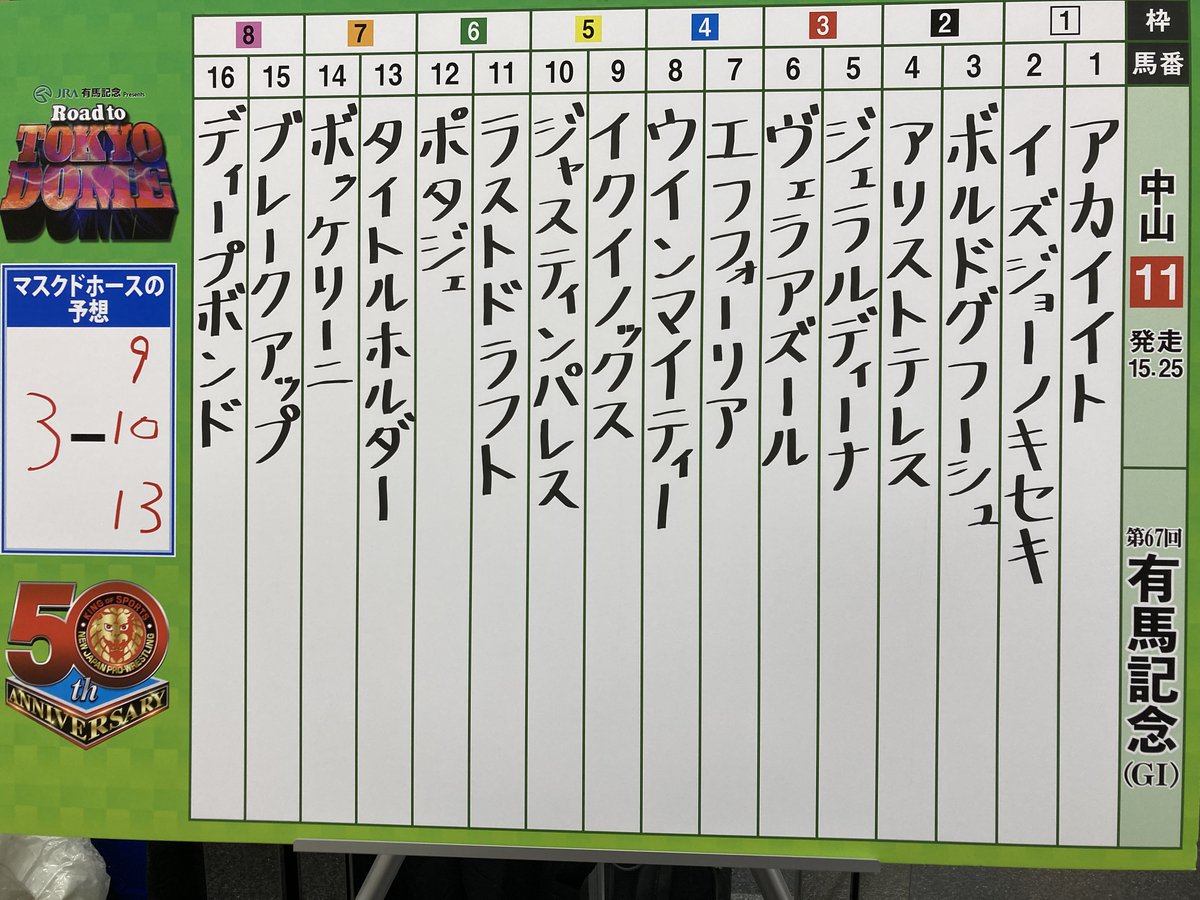 枠
1
2
3
4
5
6
7
8
馬番
1
2
3
4
5
6
7
8
9
10
11
12
13
14
15
16
中山
11
発走
15.25
第67回
有馬記念
(GI)
アカイイト
イズジョーノキセキ
ボルドグフーシュ
アリストテレス
ジェラルディーナ
ヴェラアズール
エフフォーリア
ウインマイティー
イクイノックス
ジャスティンパレス
ラストドラフト
ポタジェ
タイトルホルダー
ボッケリーニ
ブレークアップ
ディープボンド
JRA 有馬記念 Presents
Road to
TOKYO
DOME
マスクドホースの
予想
9
3-10
13
50th
KING OF SPORTS
NEW JAPAN PRO-WRESTLING
ANNIVERSARY